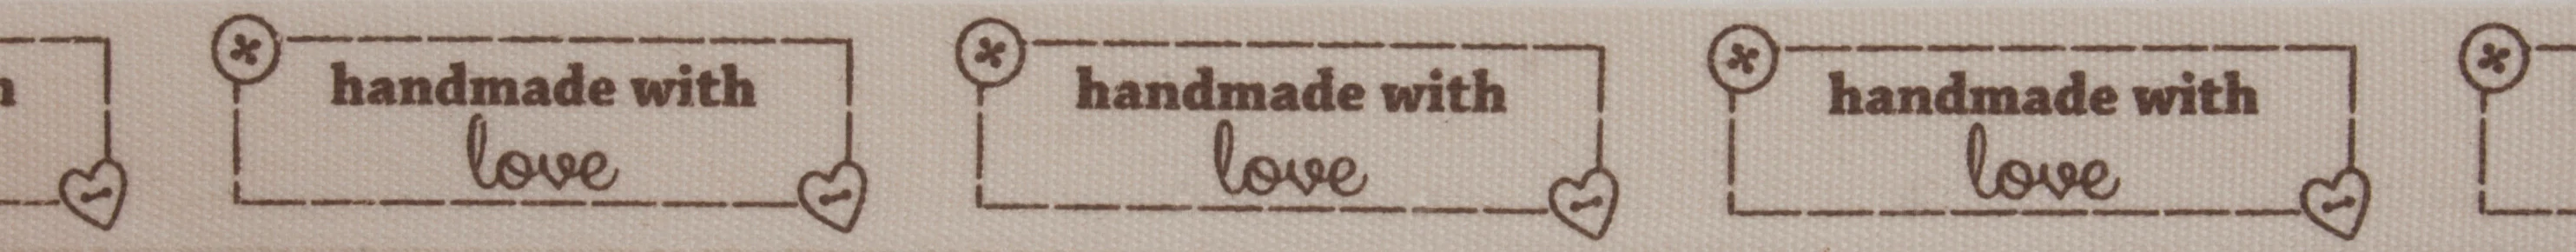 handmade with
love
handmade with
love
handmade with
love